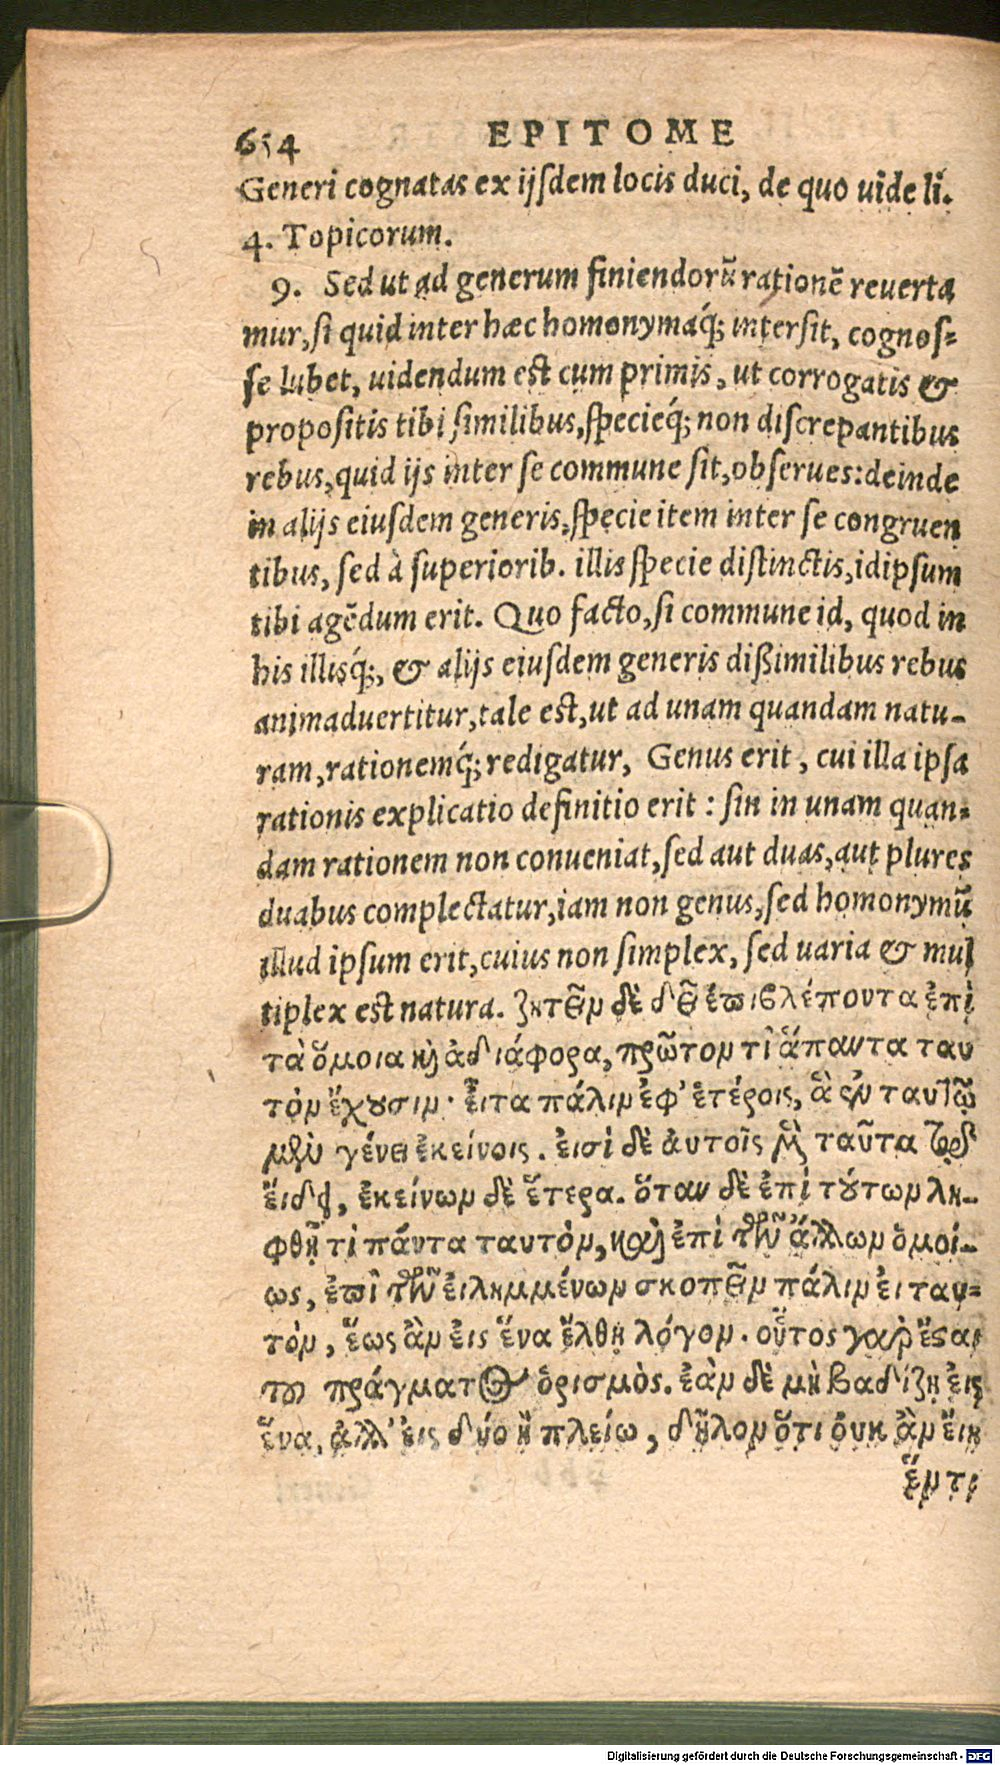 654 EPITOME
Generi cognatas ex ijsdem locis duci, de quo uide li.
4. Topicorum.
9. Sed ut ad generum finiendorũ rationẽ reuerta
mur, si quid inter hæc homonymaq́; intersit, cognos-
se lubet, uidendum est cum primis, ut corrogatis &
propositis tibi similibus, specieq́; non discrepantibus
rebus, quid ijs inter se commune sit, obserues: deinde
in alijs eiusdem generis, specie item inter se congruen
tibus, sed à superiorib. illis specie distinctis, idipsum
tibi agẽdum erit. Quo facto, si commune id, quod in
his illisq́;, & alijs eiusdem generis dißimilibus rebus
animaduertitur, tale est, ut ad unam quandam natu-
ram, rationemq́; redigatur, Genus erit, cui illa ipsa
rationis explicatio definitio erit: sin in unam quan-
dam rationem non conueniat, sed aut duas, aut plures
duabus complectatur, iam non genus, sed homonymũ
illud ipsum erit, cuius non simplex, sed uaria & mul
tiplex est natura. ζητεῖν δὲ δεῖ ἐπιβλέποντα ἐπὶ
τὰ ὅμοια καὶ ἀδιάφορα, πρῶτον τὶ ἅπαντα ταυ
τὸν ἔχουσιν· εἶτα πάλιν ἐφ’ ἑτέροις, ἃ ἐν ταυτῷ
μὲν γένει ἐκείνοις. εἰσὶ δὲ αὐτοῖς μὲν ταῦτα τῷ
εἴδει, ἐκείνων δὲ ἕτερα. ὅταν δὲ ἐπὶ τούτων λη-
φθῇ τὶ πάντα ταυτὸν, καὶ ἐπὶ τῶν ἄλλων ὁμοί-
ως, ἐπὶ τῶν εἰλημμένων σκοπεῖν πάλιν εἰ ταυ-
τὸν, ἕως ἂν εἰς ἕνα ἔλθῃ λόγον. οὗτος γὰρ ἔσται
τοῦ πράγματος ὁρισμὸς. ἐὰν δὲ μὴ βαδίζῃ εἰς
ἕνα, ἀλλ’ εἰς δύο ἢ πλείω, δῆλον ὅτι οὐκ ἂν εἴη
ἕν τι
Digitalisierung gefördert durch die Deutsche Forschungsgemeinschaft - DFG